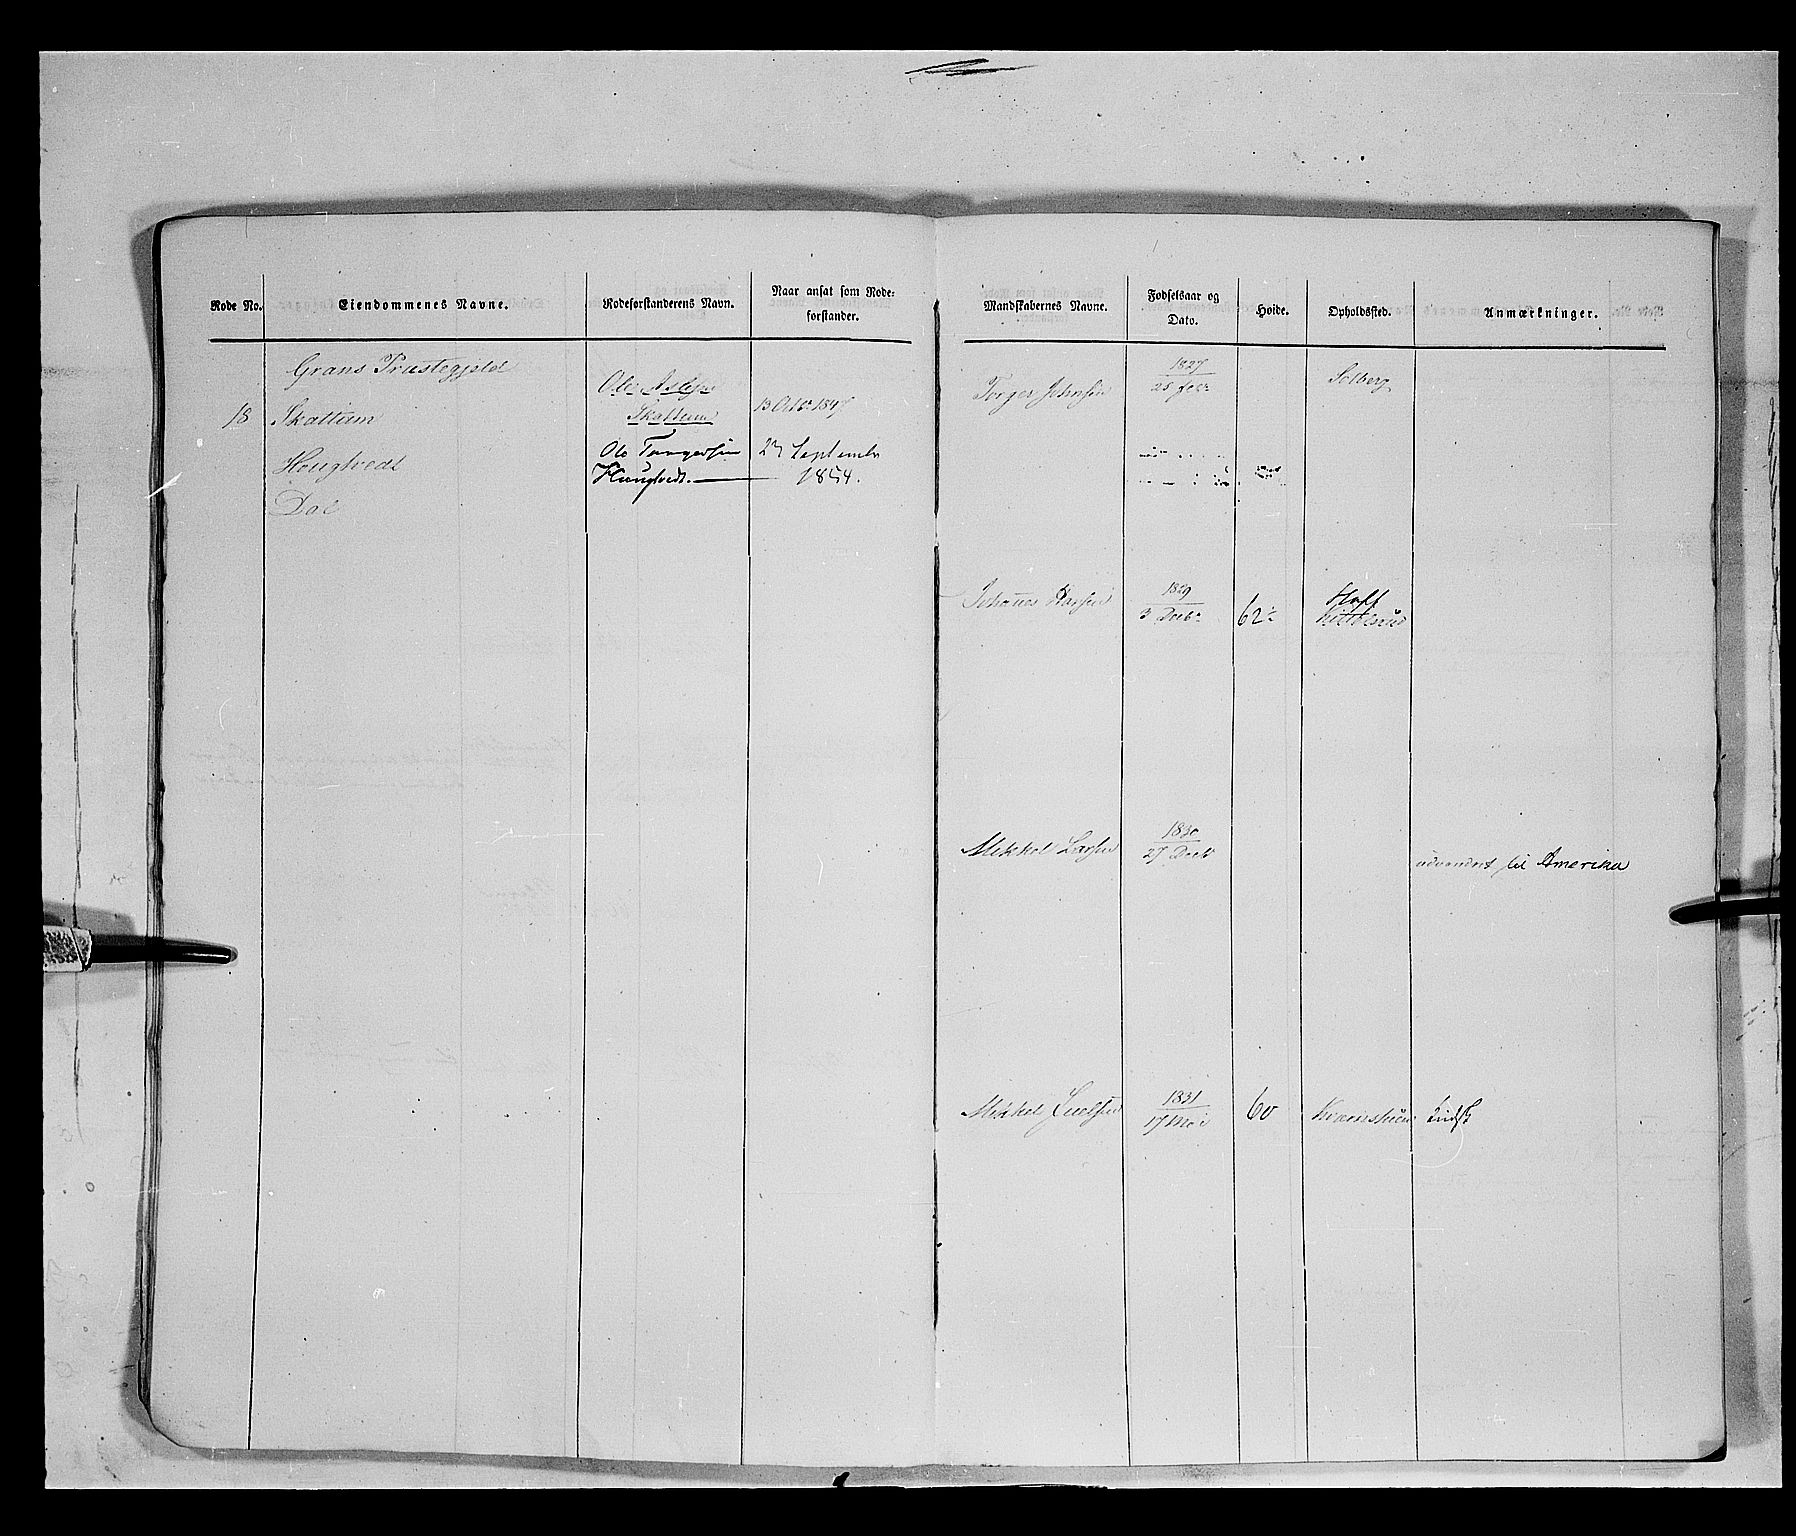 Rode No.
Eiendommenes Navne.
Rodeforstanderens Navn.
Naar ansat som Rode-
forstander.
Grans Præstegjeld
18
Skattum
Hougtvedt
Dal
Ole
Skattum
13 Octbr 1847
Ole Torgersen
Haugtvedt.
27 September
1854.
Mandskabernes Navne.
Fødselsaar og
Dato.
Høide.
Opholdssted.
Anmærkninger.
Torger Johnsen
1827
25 febr
Solberg
Johannes Larsen
1829
3 Decbr
62
Hoff
Mikkel Larsen
1830
27 Decbr
udvandret til Amerika
Mikkel
1831
17 Mai
60